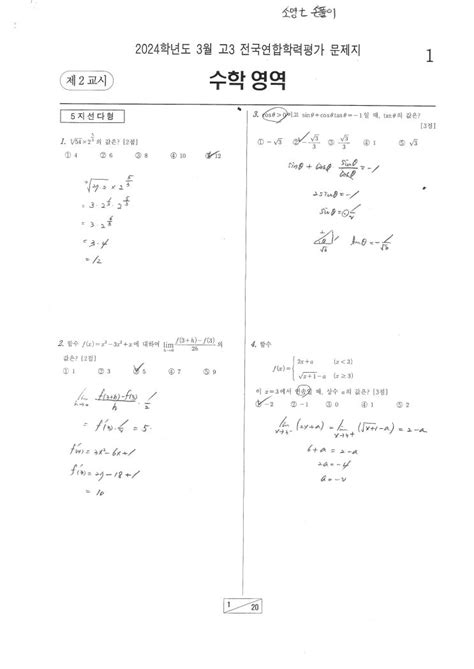 2024학년도 3월 고3 전국연합학력평가 문제지
1
제 2 교시
수학 영역
5지선다형
1. ∛54 × 2^(5/3) 의 값은? [2점]
① 4 ② 6 ③ 8 ④ 10 ⑤ 12
= 3·4
= 12
2. 함수 f(x)=x³-3x²+x에 대하여 lim h→0 (f(3+h)-f(3))/2h 의
값은? [2점]
① 1 ② 3 ③ 5 ④ 7 ⑤ 9
lim h→0 (f(3+h)-f(3))/h · 1/2
= f'(3)·1/2 = 5.
f'(x) = 3x²-6x+1
f'(3) = 27-18+1
= 10
3. cosθ>0이고 sinθ+cosθtanθ=-1일 때, tanθ의 값은?
[3점]
① -√3 ② -√3/3 ③ √3/3 ④ 1 ⑤ √3
sinθ + cosθ · sinθ/cosθ = -1
2sinθ = -1
4. 함수
f(x)= { 2x+a (x<3)
√(x+1)-a (x≥3)
이 x=3에서 연속일 때, 상수 a의 값은? [3점]
① -2 ② -1 ③ 0 ④ 1 ⑤ 2
6+a = 2-a
2a = -4
a = -2
1
20